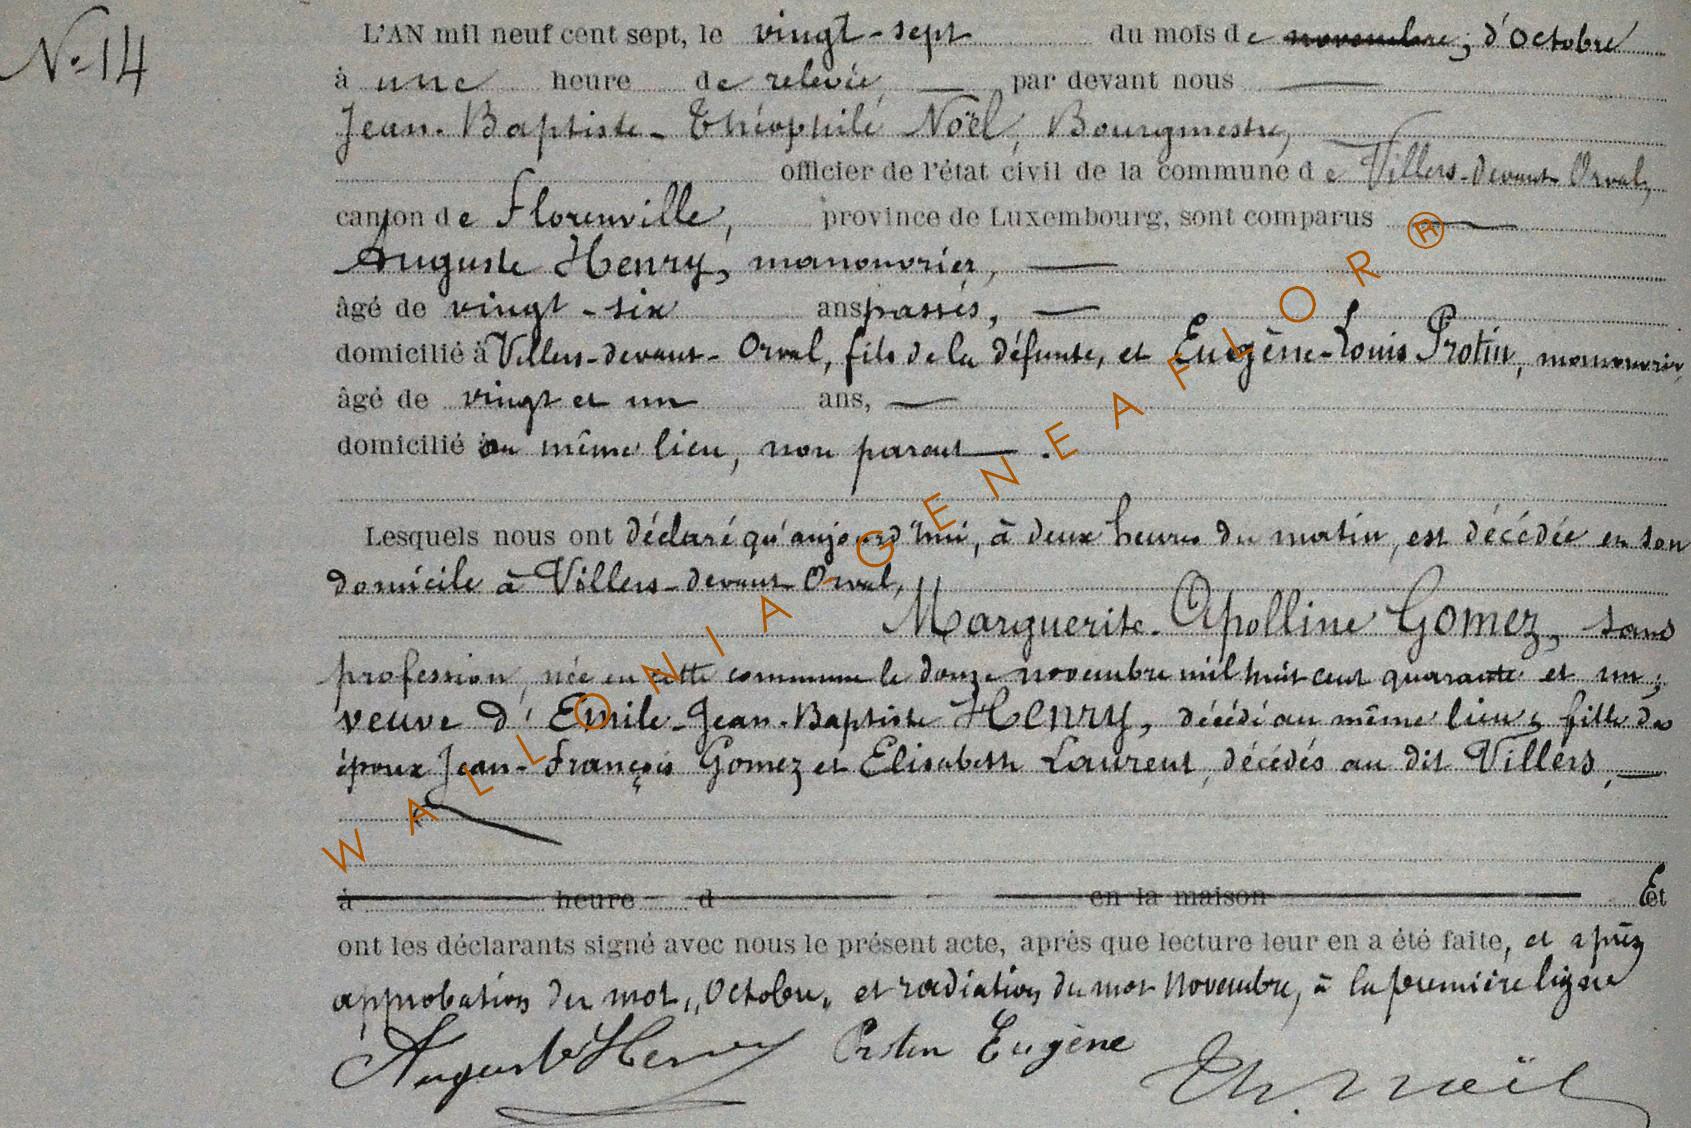 N° 14
L'AN mil neuf cent sept, le vingt-sept du mois de novembre, d'Octobre
à une heure de relevée, par devant nous
Jean-Baptiste-Théophile Noël, Bourgmestre,
officier de l'état civil de la commune de Villers-devant-Orval,
canton de Florenville, province de Luxembourg, sont comparus
Auguste Henry, manouvrier,
âgé de vingt-six ans passés,
domicilié à Villers-devant-Orval, fils de la défunte, et Eugène-Louis Protin, manouvrier,
âgé de vingt et un ans,
domicilié au même lieu, non parent.
Lesquels nous ont déclaré qu'aujourd'hui, à deux heures du matin, est décédée en son
domicile à Villers-devant-Orval,
Marguerite-Apolline Gomez, sans
profession, née en cette commune le douze novembre mil huit cent quarante et un,
veuve d'Emile-Jean-Baptiste Henry, décédé au même lieu, fille des
époux Jean-François Gomez et Elisabeth Laurent, décédés au dit Villers,
à heure d en la maison Et
ont les déclarants signé avec nous le présent acte, après que lecture leur en a été faite, et après
approbation du mot „Octobre„ et radiation du mot Novembre, à la première ligne
Auguste Henry Protin Eugène Th. Noël
WALLONIA-GENEAFLOR®